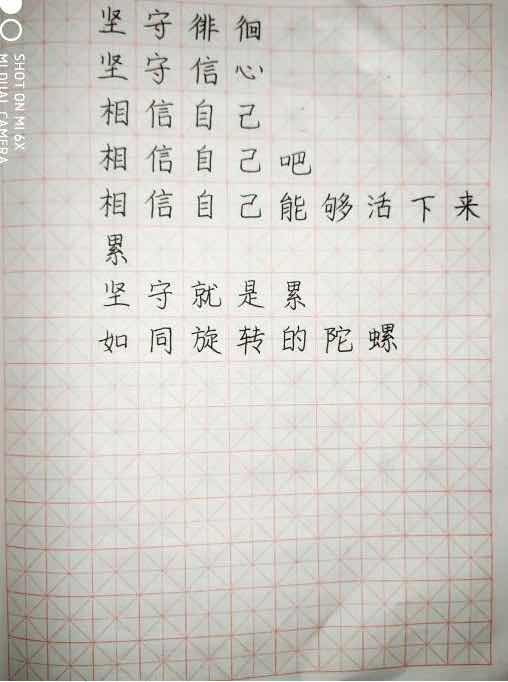 坚守徘徊
坚守信心
相信自己
相信自己吧
相信自己能够活下来
累
坚守就是累
如同旋转的陀螺
SHOT ON MI 6X
MI DUAL CAMERA